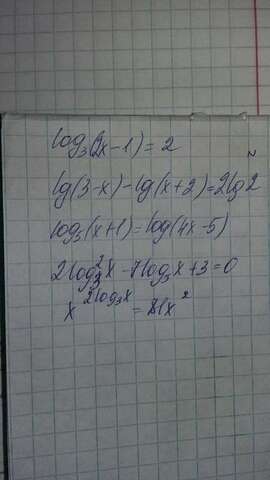 log₃(2x-1)=2
lg(3-x)-lg(x+2)=2lg2
log₅(x+1)=log(4x-5)
2log₃²x-7log₃x+3=0
x^(2log₃x)=81x²